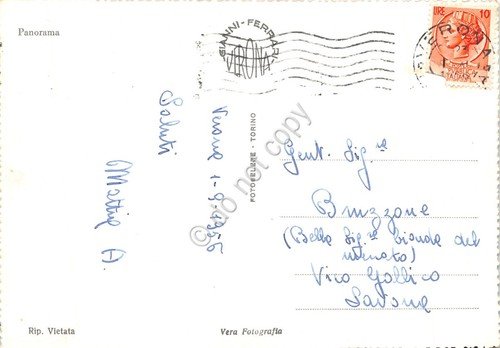 Panorama
GIANNI-FERRARI
VERONA
LIRE 10
VERONA
Verona 1-9-1956
Saluti
FOTOCELERE - TORINO
do not copy
Gent. Sig.ª
Bruzzone
(Bella Sig.ª bionda del
mercato)
Vico Gallico
Savona
Rip. Vietata
Vera Fotografia